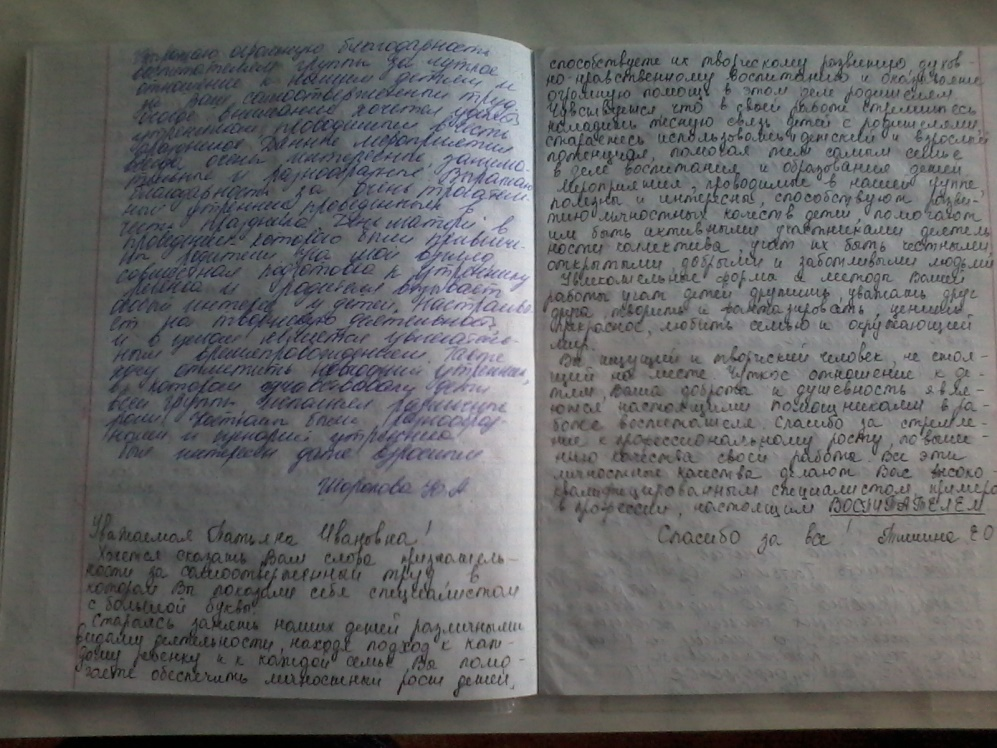 Выражаю огромную благодарность
воспитателям группы за чуткое
отношение к нашим детям и
за Ваш самоотверженный труд.
Особое внимание хочется уделить
утренникам, проводимым в честь
праздников. Данные мероприятия
всегда очень интересные, занима-
тельные и разнообразные. Выражаю
благодарность за очень трогатель-
ный утренник, проведенный в
честь праздника День матери в
проведении которого были привлече-
ны родители. На мой взгляд
совместная подготовка к утреннику
и родителей вызывает
интерес у детей, настраива-
ет на творческую деятельность
и в целом является увлекатель-
ным времяпровождением. Также
хочу отметить новогодний утренник,
в котором участвовали дети
всей группы исполняя различные
роли. Костюмы были разнообраз-
ными и сценарий утренника
был интересен даже взрослым
Шорохова Ю.А
Уважаемая Татьяна Ивановна!
Хочется сказать Вам слова признатель-
ности за самоотверженный труд, в
котором Вы показали себя специалистом
с большой буквы.
Стараясь занять наших детей различными
видами деятельности, находя подход к каж-
дому ребенку и к каждой семье Вы помо-
гаете обеспечить личностный рост детей,
способствуете их творческому развитию духов-
но-нравственному воспитанию и оказываете
огромную помощь в этом деле родителям.
Чувствуется, что в своей работе стремитесь
наладить тесную связь детей с родителями,
стараетесь использовать и детский и взрослый
потенциал, помогая тем самым семье
в деле воспитания и образования детей.
Мероприятия, проводимые в нашей группе,
полезны и интересны, способствуют разви-
тию личностных качеств детей, помогают
им быть активными участниками деятель-
ности коллектива, учат их быть честными,
открытыми добрыми и заботливыми людьми
Увлекательные форма и методы Вашей
работы учат детей дружить, уважать друг
друга, творить и фантазировать, ценить
прекрасное, любить семью и окружающий
мир.
Вы ищущий и творческий человек, не стоя-
щий на месте. Чуткое отношение к де-
тям, Ваша доброта и душевность явля-
ются настоящими помощниками в ра-
боте воспитателя. Спасибо за стремле-
ние к профессиональному росту, повыше-
нию качества своей работы. Все эти
личностные качества делают Вас высоко-
квалифицированным специалистом, примером
в профессии, настоящим ВОСПИТАТЕЛЕМ
Спасибо за все! Тишина Е О